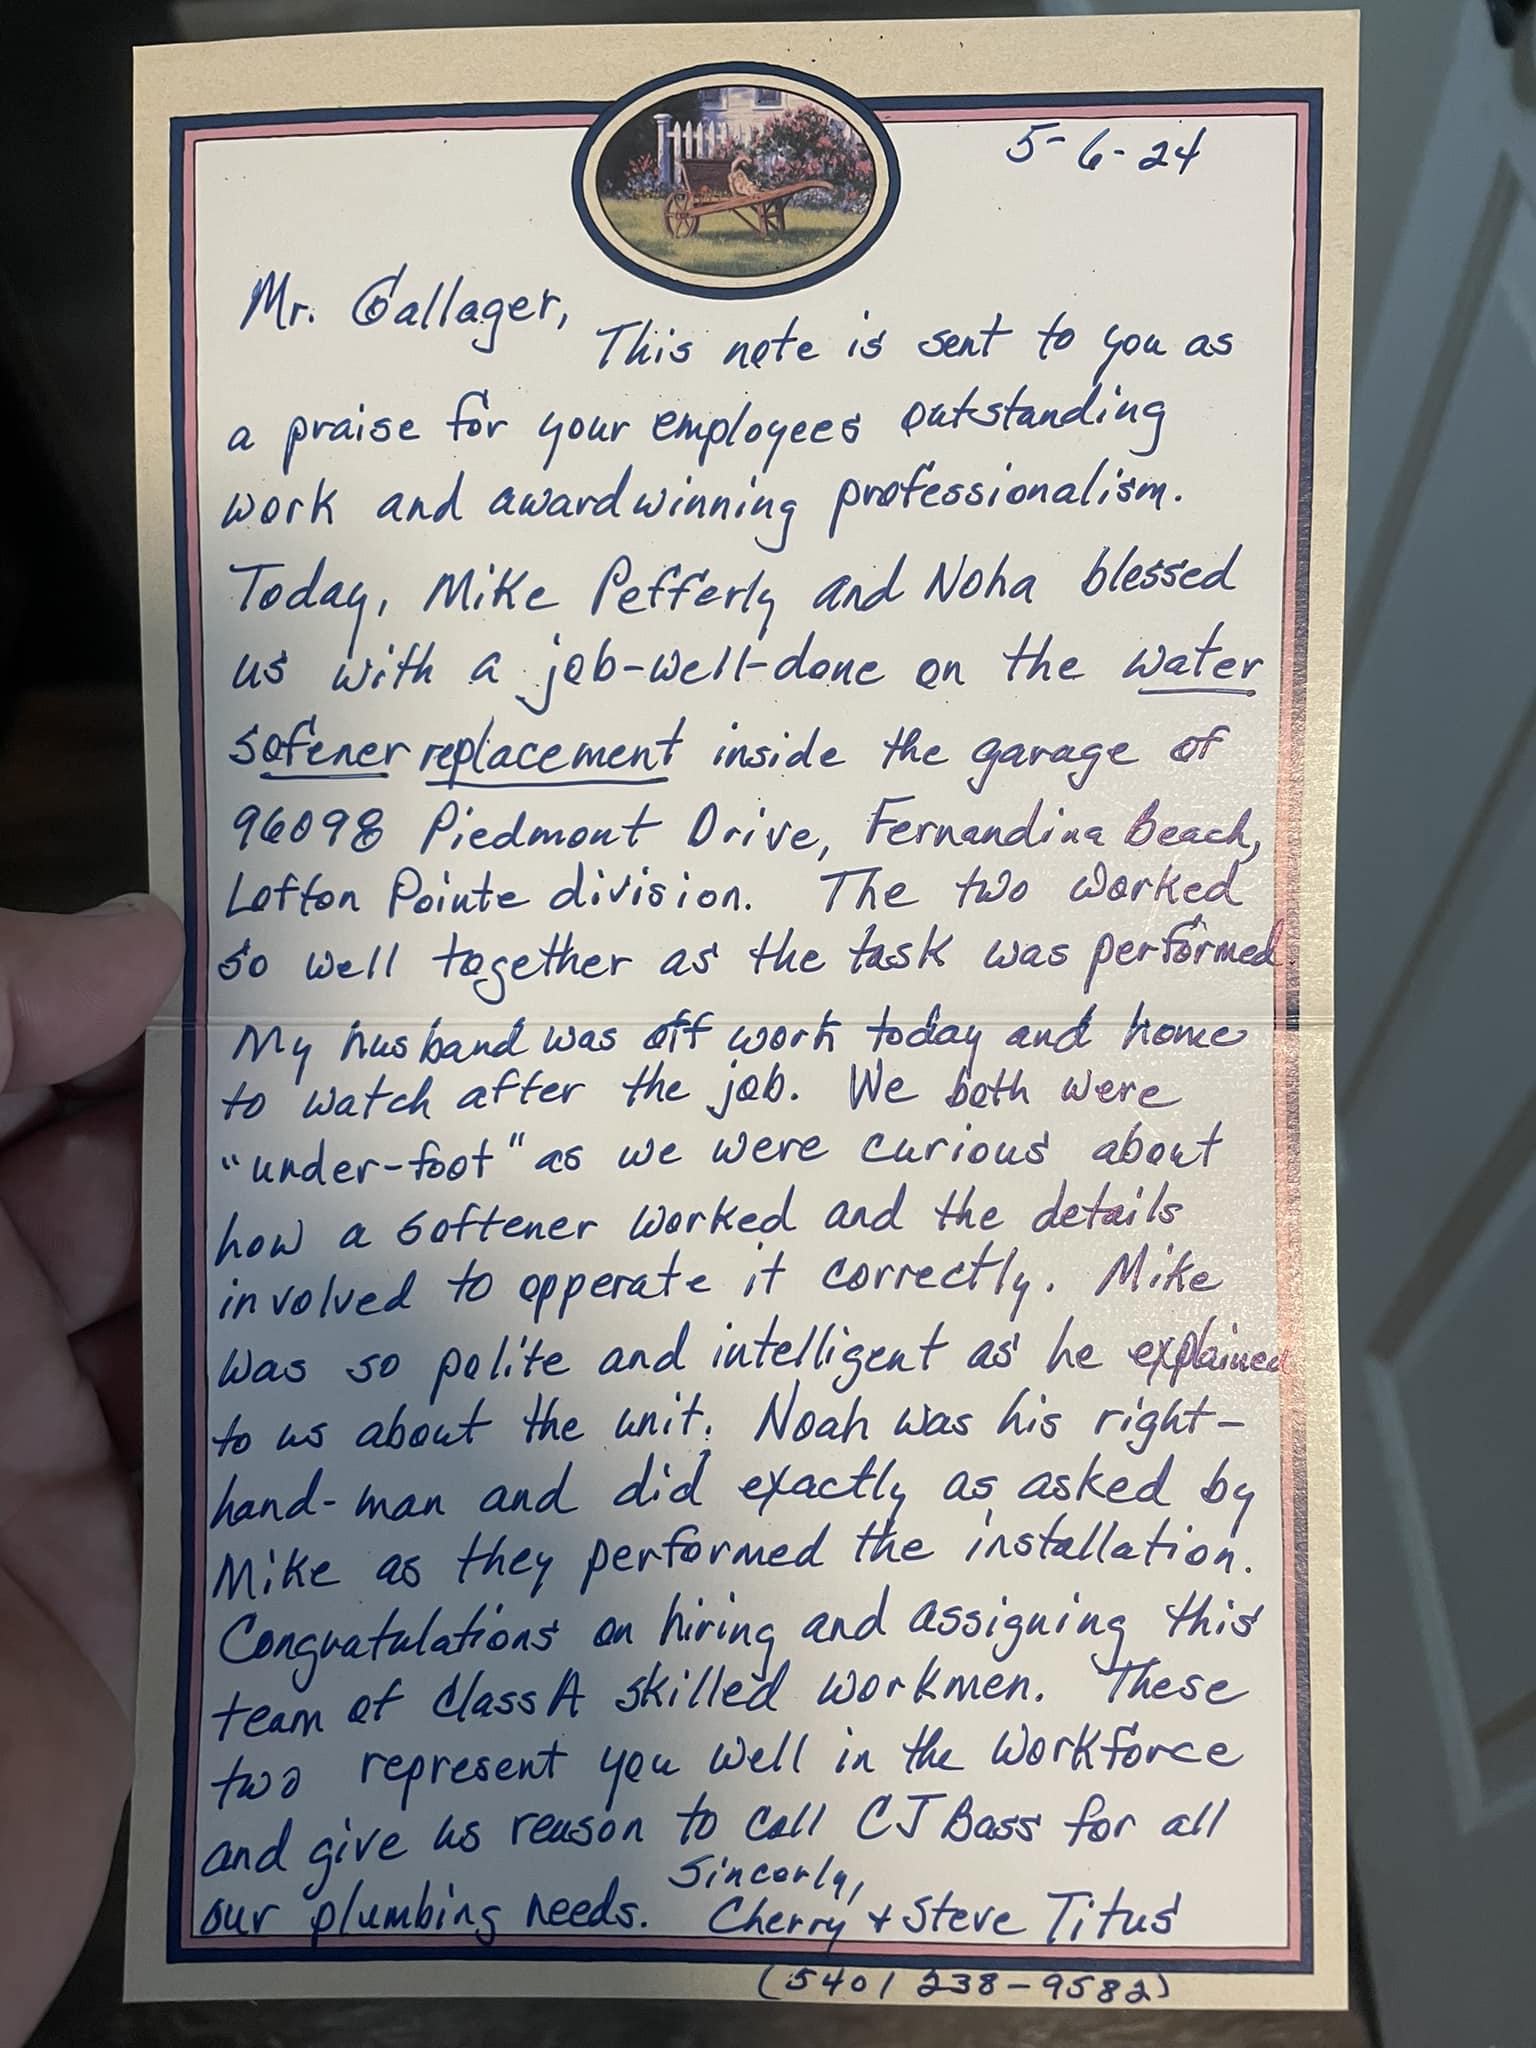 5-6-24
Mr. Gallager,
This note is sent to you as
a praise for your employees outstanding
work and award winning professionalism.
Today, Mike Pefferly and Noha blessed
us with a job-well-done on the water
sofener replacement inside the garage of
96098 Piedmont Drive, Fernandina Beach,
Lofton Pointe division. The two worked
so well together as the task was performed
My husband was off work today and home
to watch after the job. We both were
"under-foot" as we were curious about
how a softener worked and the details
involved to opperate it correctly. Mike
was so polite and intelligent as he explained
to us about the unit. Noah was his right-
hand-man and did exactly as asked by
Mike as they performed the installation.
Congratulations on hiring and assigning this
team of Class A skilled workmen. These
two represent you well in the workforce
and give us reason to call CJ Bass for all
our plumbing needs. Sincerly,
Cherry + Steve Titus
(540) 238-9582)